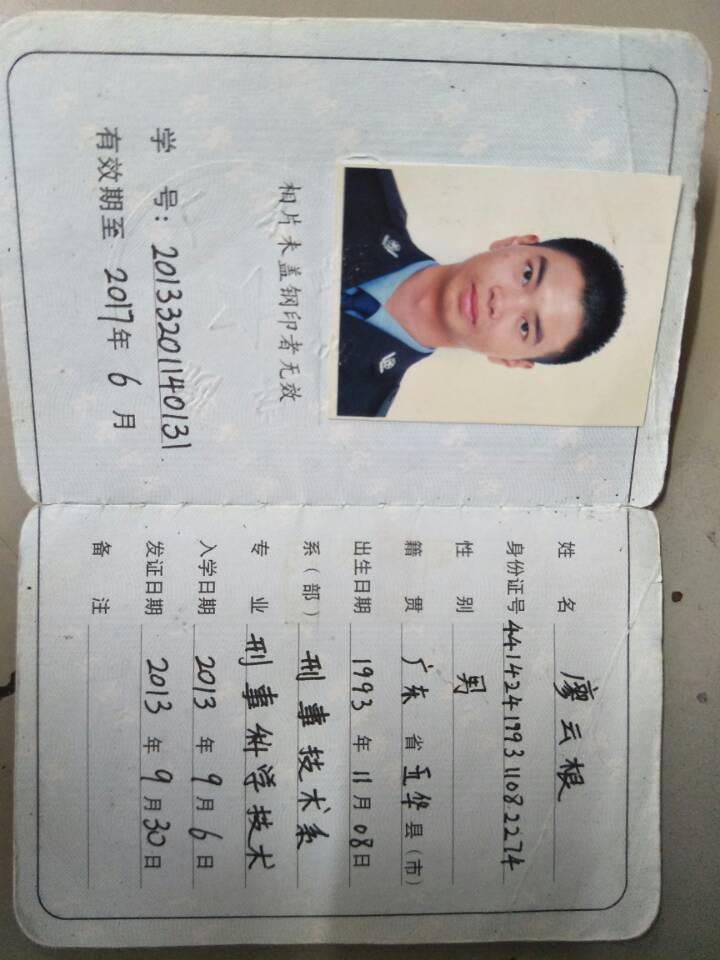 相片未盖钢印者无效
学 号: 20133201140131
有效期至 2017年 6 月
姓 名 廖云根
身份证号 441424199311082274
性 别 男
籍 贯 广东 省 五华 县(市)
出生日期 1993 年 11 月 08 日
系(部) 刑事技术系
专 业 刑事科学技术
入学日期 2013 年 9 月 6 日
发证日期 2013 年 9 月 30 日
备 注